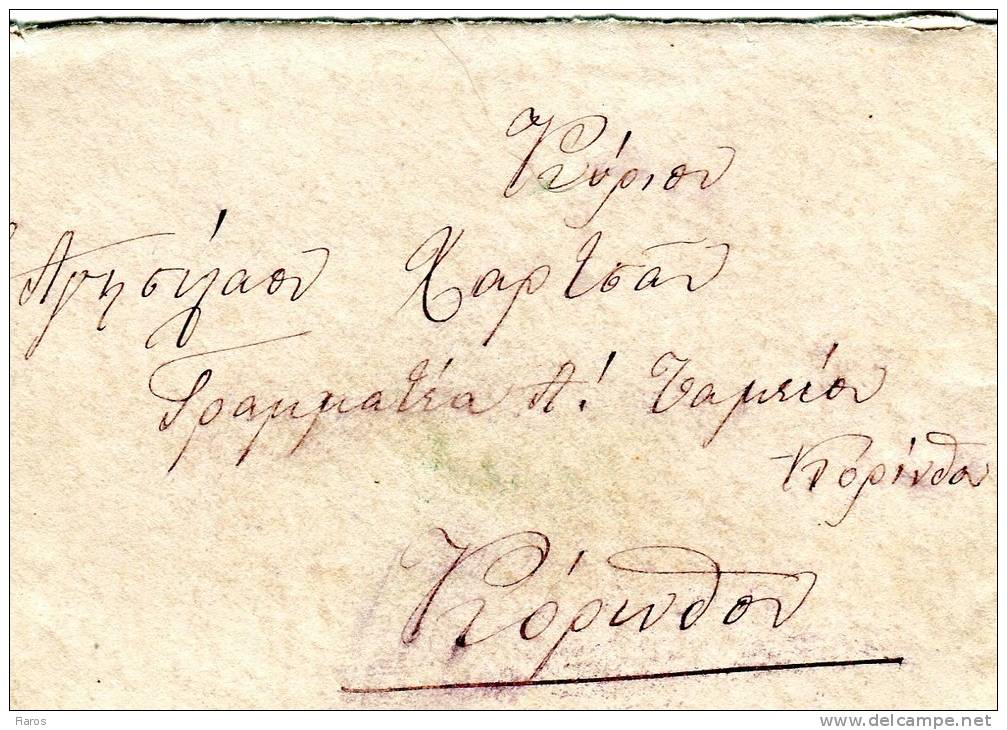 Κύριον
Ἀγησίλαον Χαρτσᾶν
Γραμματέα Α! Ταμείου
Κορίνθου
Κόρινθον
Raros
www.delcampe.net